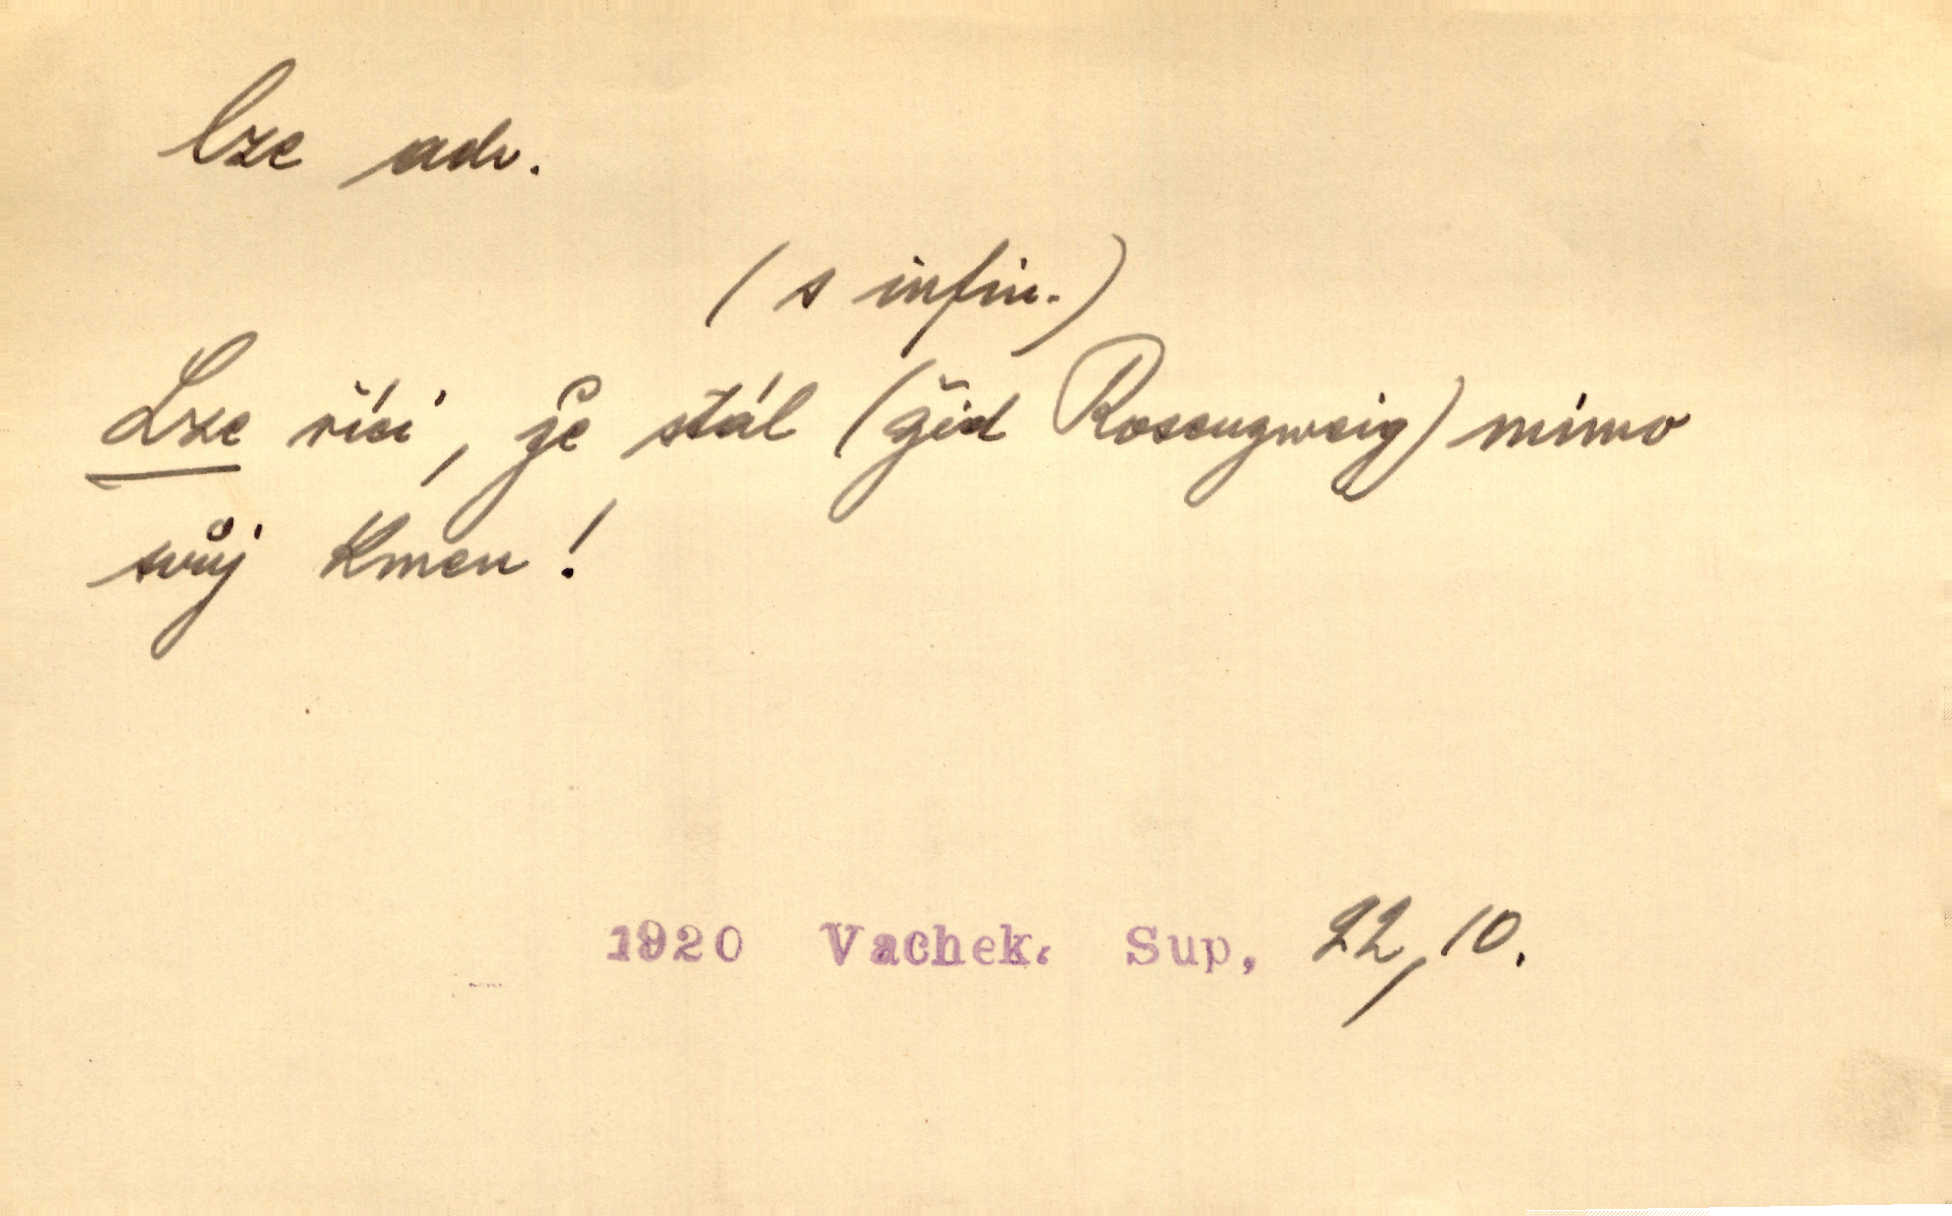 lze adv.
(s infin.)
Lze říci, že stál (žid Rosenzweig) mimo
svůj kmen!
1920 Vachek. Sup, 22, 10.